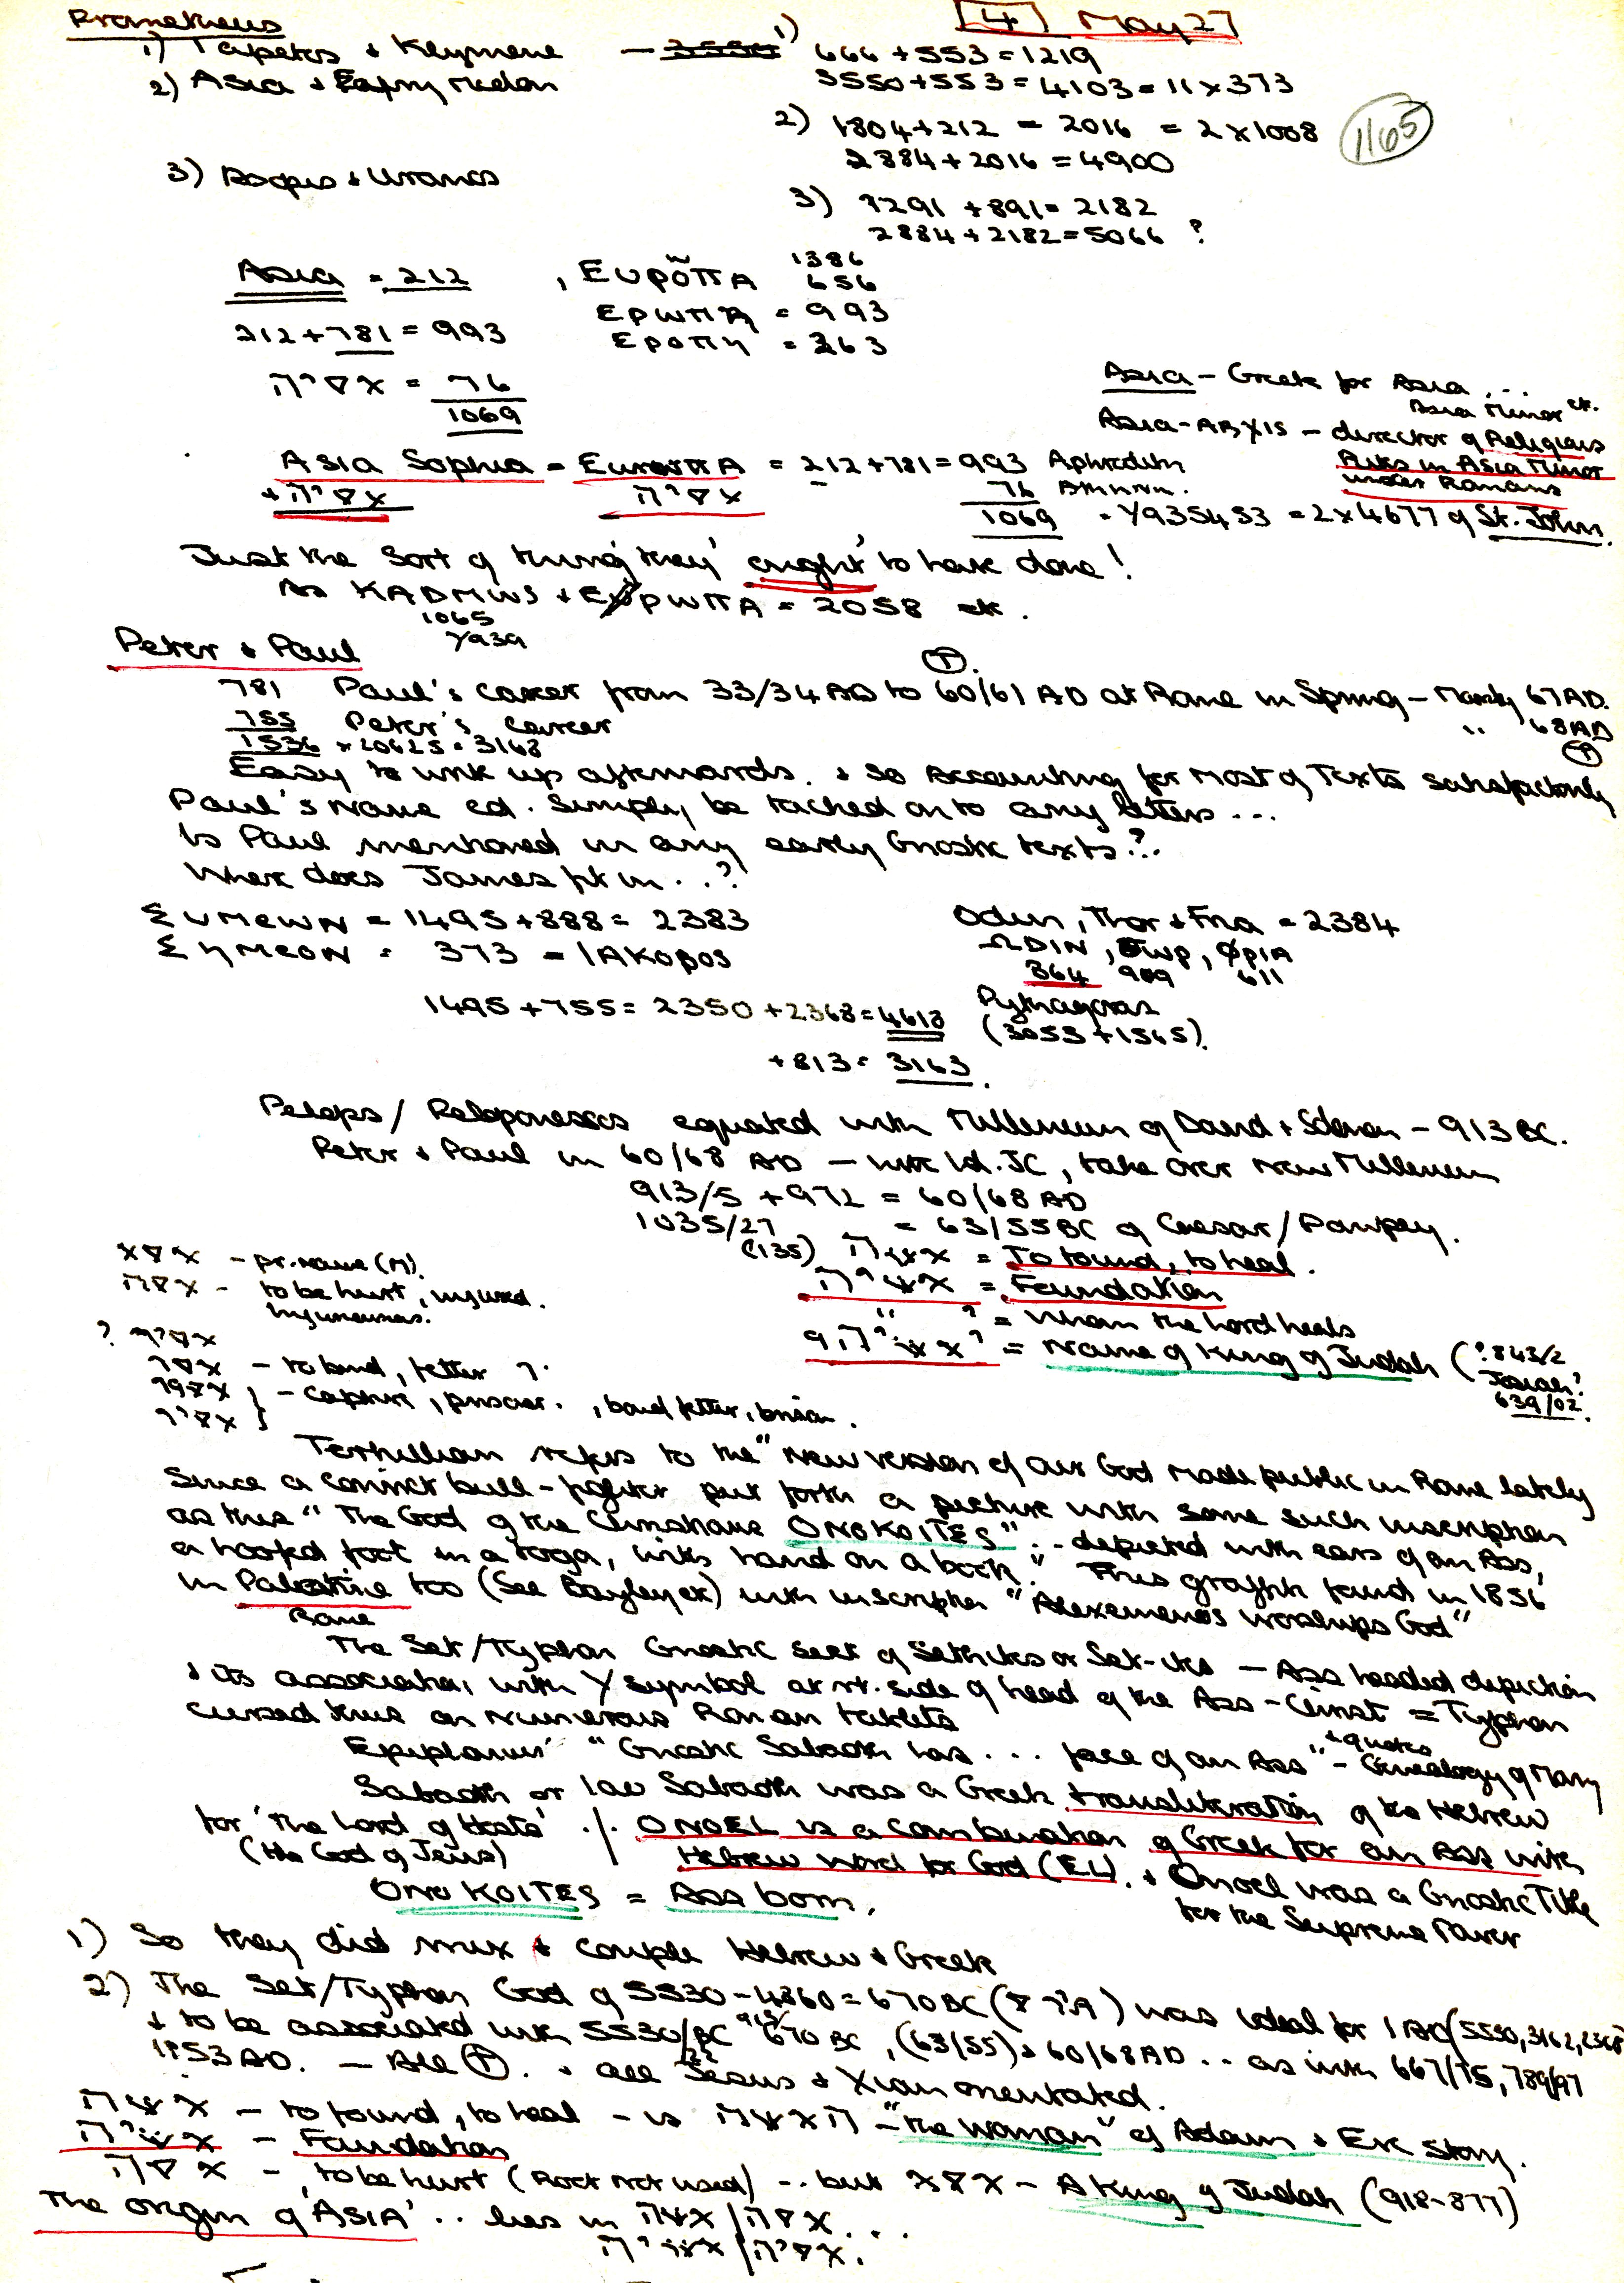 Prometheus
[4] May 27
1) Iapetos + Klymene — 1) 666 + 553 = 1219
3550 + 553 = 4103 = 11 x 373
2) Asia + Eurymedon
2) 1804 + 212 = 2016 = 2 x 1008
1165
2884 + 2016 = 4900
3) + Uranos
3) 1291 + 891 = 2182
2884 + 2182 = 5066 ?
Asia = 212 , ΕυρõπΑ 1386 656
212 + 781 = 993 ΕρωπΗ = 993
Εροπη = 263
היסא = 76
1069
Asia - Greek for Asia, ...
Asia Minor etc.
Asia-ARXIS - director of Religious
Rites in Asia Minor
under Romans
Asia Sophia = EuropπA = 212 + 781 = 993 Aphrodite
+ היסא היסא 76
1069 = √935453 = 2 x 4677 of St. John.
Just the sort of thing they 'ought' to have done!
As KADMWS + EυρωπA = 2058 etc.
1065
√939
Peter + Paul
781 Paul's career from 33/34 AD to 60/61 AD at Rome in Spring - 67 AD.
755 Peter's career " 68 AD
1536 x 20625 = 3168
Easy to work up afterwards. + so accounting for most of Texts satisfactorily
Paul's name cd. simply be tached onto any letters ...
Is Paul mentioned in any early Gnostic texts?.
Where does James fit in ..?
ΣυΜΕWΝ = 1495 + 888 = 2383
Odin, Thor + Fria = 2384
ΣηΜΕΟΝ = 373 = IAKOBOS
ΩDIN, Θωρ, ΦριΑ
364 909 611
1495 + 755 = 2350 + 2368 = 4618 Pythagoras
(3053 + 1565).
+ 813 = 3163.
Pelops / Peloponesos equated with Millenium of David + Solomon - 913 BC.
Peter + Paul in 60/68 AD - with Ld. JC, take over new Millenium
913/5 + 972 = 60/68 AD
1035/27 = 63/55 BC of Caesar / Pompey.
(135) השא = To found, to heal.
אסא - pr. name (M).
הסא - to be hurt, injured.
Injuriousness.
הישא = Foundation
" = Whom the Lord heals
= Name of King of Judah (? 843/2
Josiah?
639/02.
- to bind, fetter
- Captive, prisoner. , band fetter, prison.
Tertullian refers to the "new version of our God made public in Rome lately
Since a convict bull-fighter put forth a picture with some such inscription
as this "The God of the Christians ONOKOITES" .. depicted with ears of an Ass,
a hoofed foot in a toga, with hand on a book." This graffiti found in 1856
in Palestine too (See ) with inscription "Alexemenos worships God"
Rome
The Set/Typhon Gnostic sect of Sethites or Set-ites - Ass headed depiction
+ its association with Y symbol at rt. side of head of the Ass - Christ = Typhon
cursed thus on numerous Roman tablets
Epiphanius' "Gnostic Sabaoth has ... face of an Ass" + quotes - Genealogy of Mary
Sabaoth or Iao Sabaoth was a Greek transliteration of the Hebrew
for 'the Lord of Hosts' ./. ONOEL is a combination of Greek for an Ass with
(the God of Jews) Hebrew word for God (EL). + Onoel was a Gnostic Title
for the Supreme Power
ONOKOITES = Ass born.
1) So they did mix + couple Hebrew + Greek
2) The Set/Typhon God of 5530 - 4860 = 670 BC was ideal for 1 AD (5530, 3162, 2368)
+ to be associated with 5530/BC 670 BC, (63/55) + 60/68 AD .. as with 667/75, 789/97
1153 AD. - All (T). + all Jesus + Xian orientated.
השא - to found, to heal - is השאה - "the woman" of Adam + Eve story.
הישא - Foundation
הסא - to be hurt (Root not used) .. but אסא - A King of Judah (918-877)
The origin of 'ASIA' .. lies in השא | הסא ...
הישא | היסא.